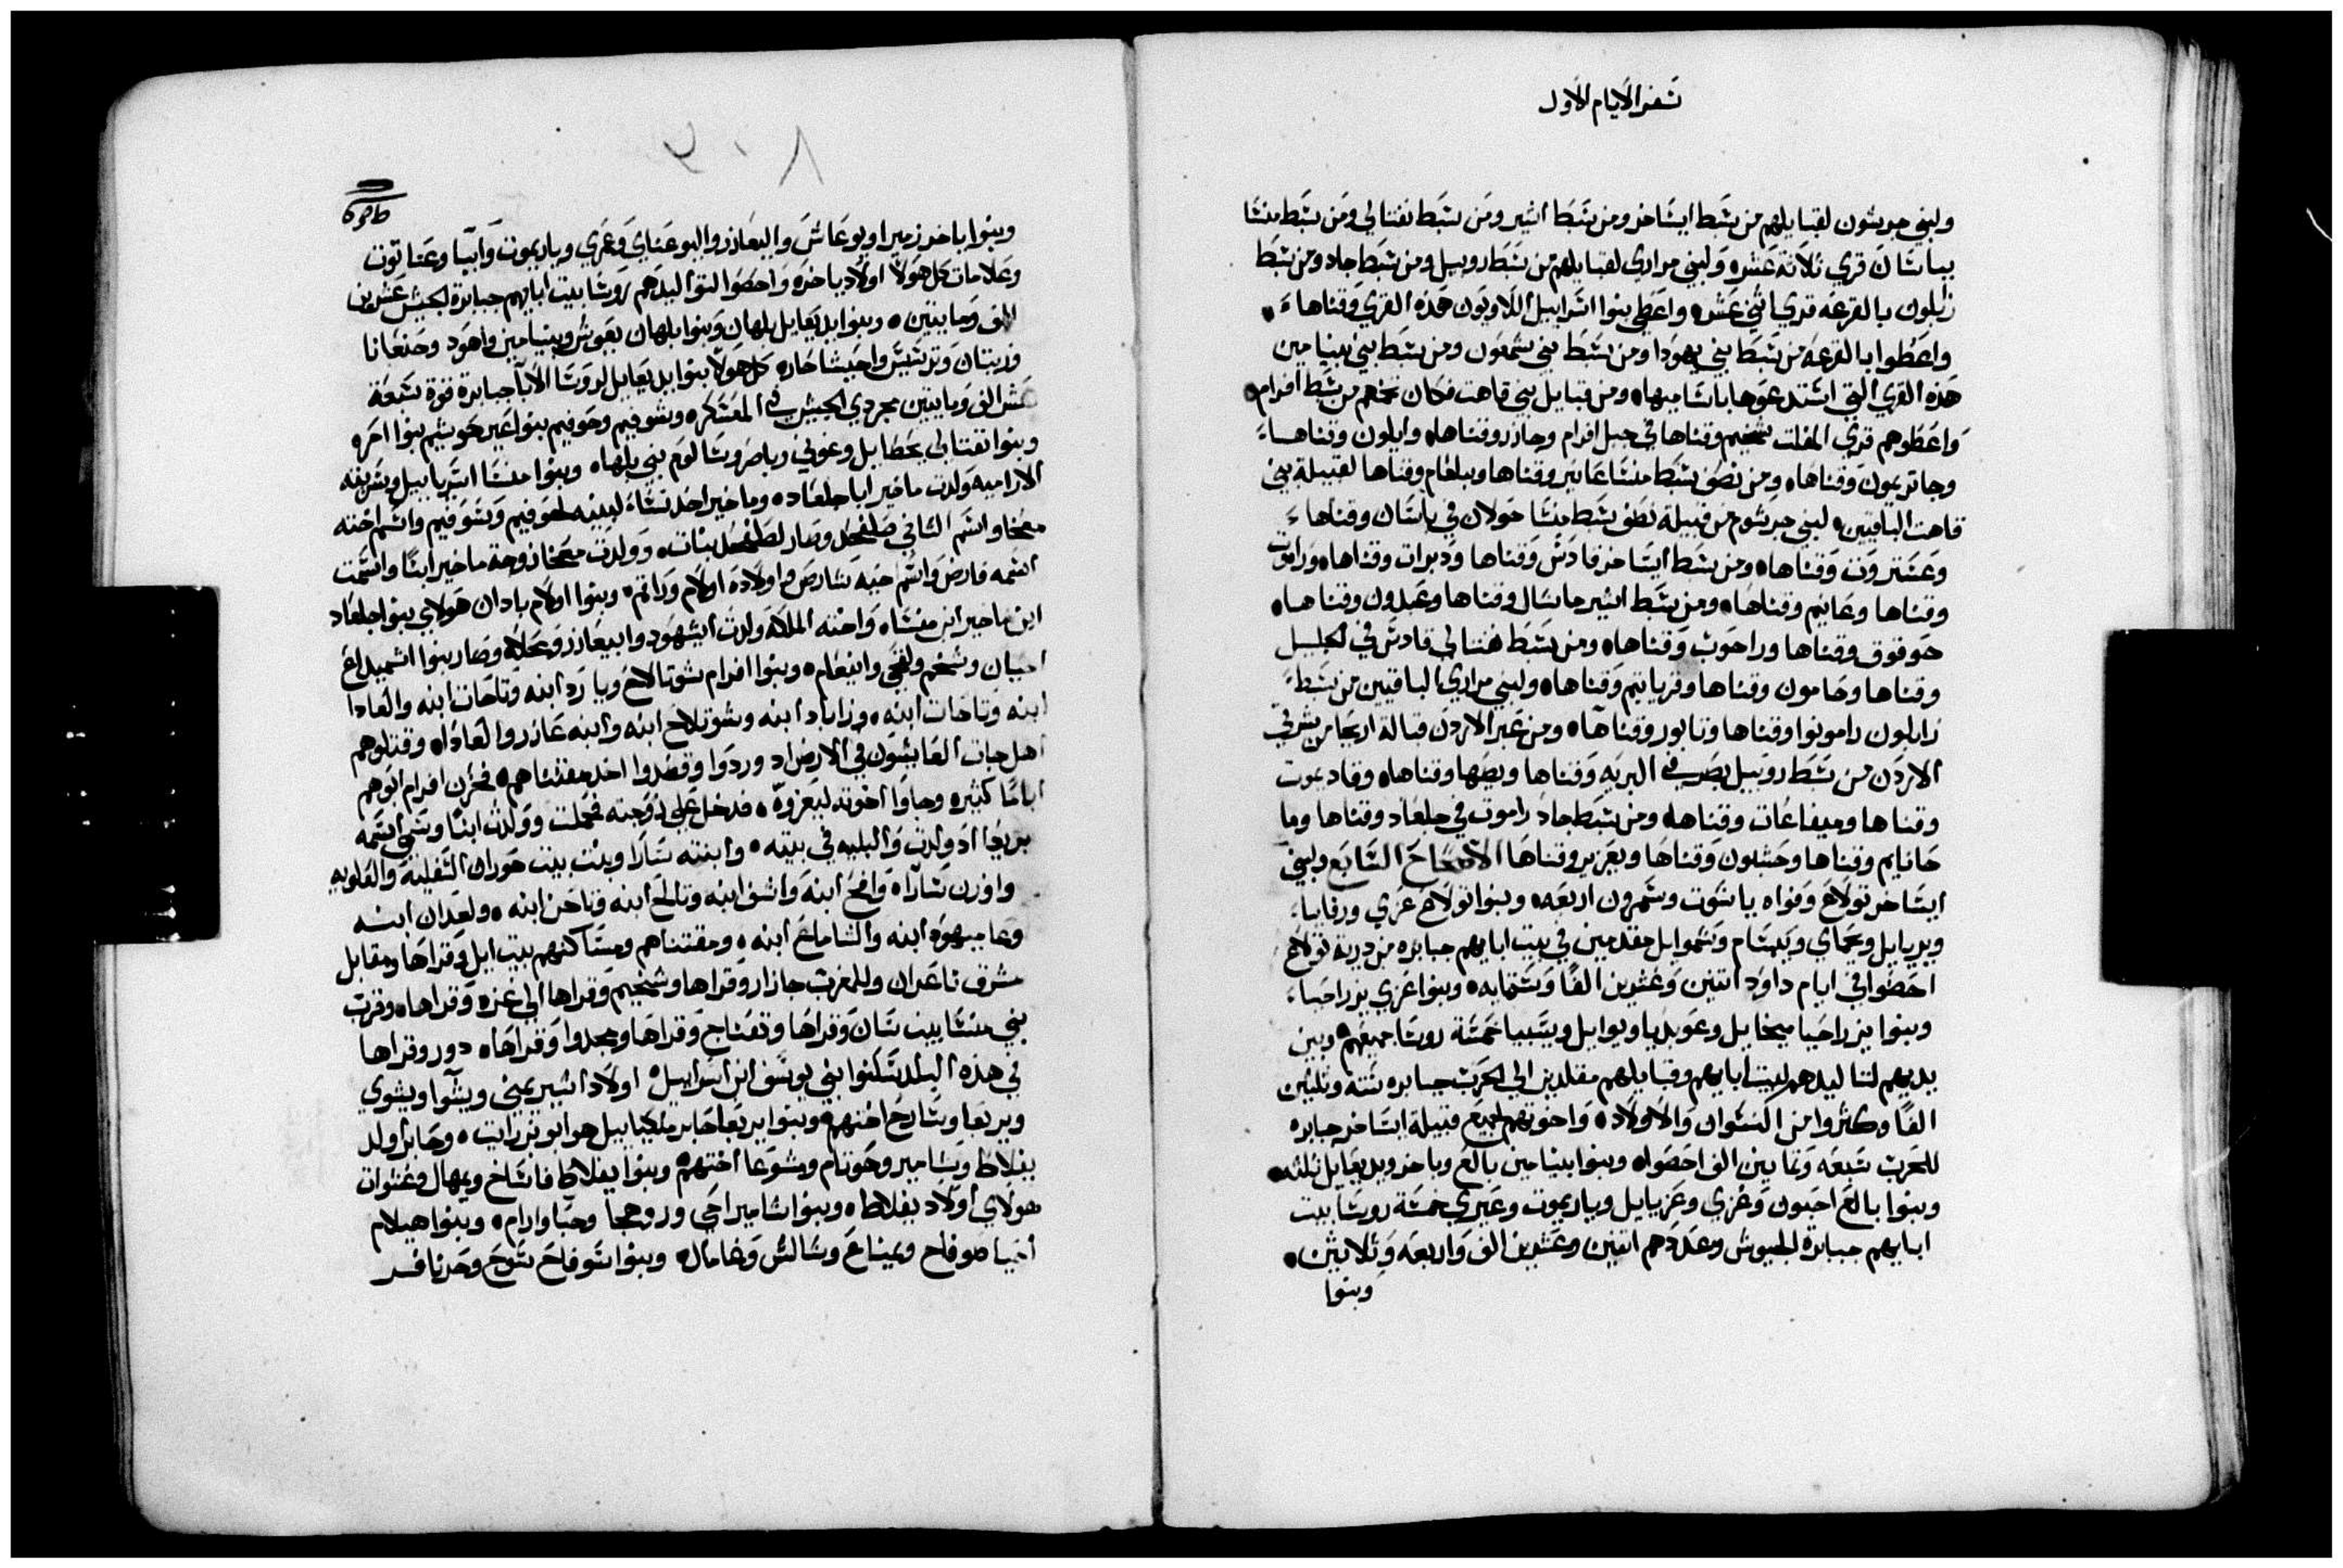 سفر الايام الاول
ولبني جرشون لقبايلهم من سبط ايساخر ومن سبط اشير ومن سبط نفتالي ومن سبط منسا
بباسان قري ثلاثة عشره ولبني مراري لقبايلهم من سبط روبيل ومن سبط جاد ومن سبط
زابلون بالقرعه قري اثني عشره واعطي بنوا اسراييل اللاويون هذه القري وقناها
واعطوا بالقرعه من سبط بني يهودا ومن سبط بني شمعون ومن سبط بني بنيامين
هذه القري التي استدعوها باسماميهاه ومن قبايل بني قاهت فكان تخم من سبط افرام
واعطوهم قري المفلت شخيم وقناها في جبل افرام وجازر وقناهاه وايلون وقناها
وجاتريمون وقناهاه ومن نصف سبط منسا عانير وقناها وبلعام وقناها لقبيلة بني
قاهت الباقيين لبني جرشوم من قبيلة نصف سبط منسا حولان في باسان وقناها
وعستروت وقناهاه ومن سبط ايساخر قادس وقناها ودبرات وقناهاه وراموت
وقناها وعانيم وقناهاه ومن سبط اشير ماسال وقناها وعبدون وقناهاه
حوقوق وقناها وراحوب وقناهاه ومن سبط نفتالي قادس في الجليل
وقناها وحامون وقناها وقرياتيم وقناهاه ولبني مراري الباقيين من سبط
زابلون رامونوا وقناها وتابور وقناهاه ومن عبر الاردن قبالة اريحا من شرقي
الاردن من سبط روبيل بصر في البريه وقناها ويصها وقناهاه وقاديموت
وقناها وميفاعات وقناهاه ومن سبط جاد راموت في جلعاد وقناها وما
حانايم وقناها وحشبون وقناها ويعزير وقناها الاصحاح السابع ولبني
ايساخر تولاع وفواه ياسوت وشمرون اربعه وبنوا تولاع عزي ورفايا
ويريايل ويحماي ويبسام وشموايل مقدمين في بيت ابايهم جبابره من درية تولاع
احصوا في ايام داود اتنين وعشرين الفا وستمايه وبنوا عزي يزراحيا
وبنوا يزراحيا ميخايل وعوبديا ويوايل ويسيا خمسة روسا جميعهم وبين
يديهم لتناليدهم لبيت ابايهم وقبايلهم مقلدين الي الحرب جبابره ستة وثلثين
الفا وكثروا من النسوان والاولاده واخوتهم لجميع قبيلة ايساخر جبابره
للحرب سبعه وثمانين الف احصواه وبنوا بنيامين بالع وباخر ويديعايل ثلثه
وبنوا بالع احبون وعزي وعزيايل وياريموت وعيري خمسة روسا بيت
ابايهم جبابرة الجيوش وعددهم اتنين وعشرين الف واربعه وثلاثين
وبنوا
وبنوا باخر زميرا ويوعاش واليعازر واليوعناي وعمري وياريموت وابيا وعناتوت
وعلامات كل هولا اولاد باخره واحصوا لتواليدهم روسا بيت ابايهم جبابرة لجيش عشرين
الف ومايتين وبنوا يديعايل بلهان وبنوا بلهان يعوش وبنيامين واهود وحنعانا
وزيتان وترشيش واحيشاحاره كل هولا بنوا يديعايل لروسا الابا جبابرة قوة سبعة
عشر الف ومايتين مجردي الجيش في المعسكره وشوفيم وحوفيم بنوا عير حوشيم بنوا احره
وبنوا نفتالي يحطايل وعوني وياصر وسالوم بني بلهاه وبنوا منسا اسريابيل وسريته
الاراميه ولدت ماخير ابا جلعاده وماخير اخد نساء لبنيه لحوفيم وشوفيم واسم اخته
معخا واسم الثاني صلفحد وصار لصلفحد بنات وولدت معخا زوجة ماخير ابنا واسمت
اسمه فارص واسم اخيه سارص واولاده اولام وراقم وبنوا اولام بادان هولاي بنوا جلعاد
ابن ماخير ابن منساه واخته الملاكه ولدت ايشهود وابيعازر ومحلاه وصار بنوا اشميداع
احيان وشخم ولقحي وانيعام وبنوا افرام شوتالاح ويارد ابنه وتاحات ابنه والعادا
ابنه وتاحات ابنه وزاباد ابنه وشوتلاح ابنه وابنه عازر والعاداه وقتلوهم
اهل جات العايشون في الارض اد وردوا وقصدوا اخد مقتناهم فحزن افرام ابوهم
اياما كثيره وجاوا اخوته ليعزوه فدخل علي زوجته فحملت وولدت ابنا وسمي اسمه
بريحا اد ولدت والبليه في بيته وابنته سارا وبنت بيت حوران السفلية والعلويه
واوزن ساراه وافح ابنه واشف ابنه وتالح ابنه وتاحن ابنه ولعدان ابنه
وعاميهود ابنه والشاماع ابنه ومقتناهم ومساكنهم بيت ايل وقراها ومقابل
مشرف ناعدان وللمغرب جازار وقراها وشخيم وقراها الي غزه وقراهاه وقرب
بني منسا بيت سان وقراها وتعناج وقراها ومجدوا وقراهاه دور وقراها
في هذه البلد سكنوا بني يوسف ابن اسراييل اولاد اشير يمني ويشوا ويشوي
وبريعا وسارح اختهم وبنوا بريعا حابر ملكيابيل هو ابو بزرايت وحابر اولد
يفلاط وشامير وحوتام وشوعا اختهم وبنوا يفلاط فاساخ ويمهال وعشوات
هولاي اولاد يفلاط وبنوا شامير احي وروهجا وحبا وارام وبنوا هيلام
اخيا صوفاح ويمناع وشالش وعامال وبنوا سوفاح سوح وحرنافر